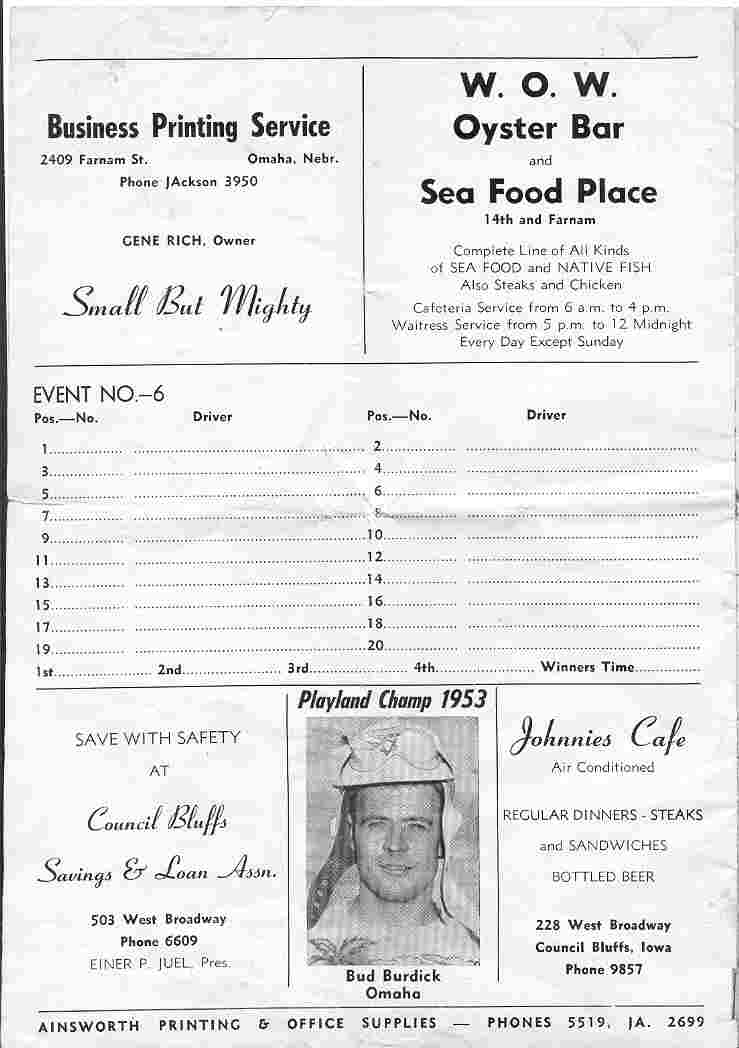 Business Printing Service
2409 Farnam St. Omaha, Nebr.
Phone JAckson 3950
GENE RICH, Owner
Small But Mighty
W. O. W.
Oyster Bar
and
Sea Food Place
14th and Farnam
Complete Line of All Kinds
of SEA FOOD and NATIVE FISH
Also Steaks and Chicken
Cafeteria Service from 6 a.m. to 4 p.m.
Waitress Service from 5 p.m. to 12 Midnight
Every Day Except Sunday
EVENT NO.—6
Pos.—No. Driver Pos.—No. Driver
1 2
3 4
5 6
7 8
9 10
11 12
13 14
15 16
17 18
19 20
1st 2nd 3rd 4th Winners Time
SAVE WITH SAFETY
AT
Council Bluffs
Savings & Loan Assn.
503 West Broadway
Phone 6609
EINER P. JUEL, Pres.
Playland Champ 1953
Bud Burdick
Omaha
Johnnies Cafe
Air Conditioned
REGULAR DINNERS - STEAKS
and SANDWICHES
BOTTLED BEER
228 West Broadway
Council Bluffs, Iowa
Phone 9857
AINSWORTH PRINTING & OFFICE SUPPLIES — PHONES 5519, JA. 2699